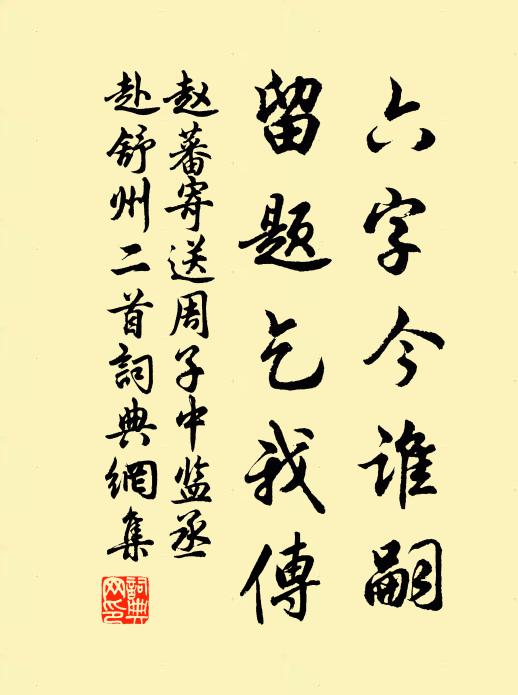 六字今谁嗣
留题乞我傳
赵蕃寄送周子中监丞
赴舒州二首詞典網集
詞典網印